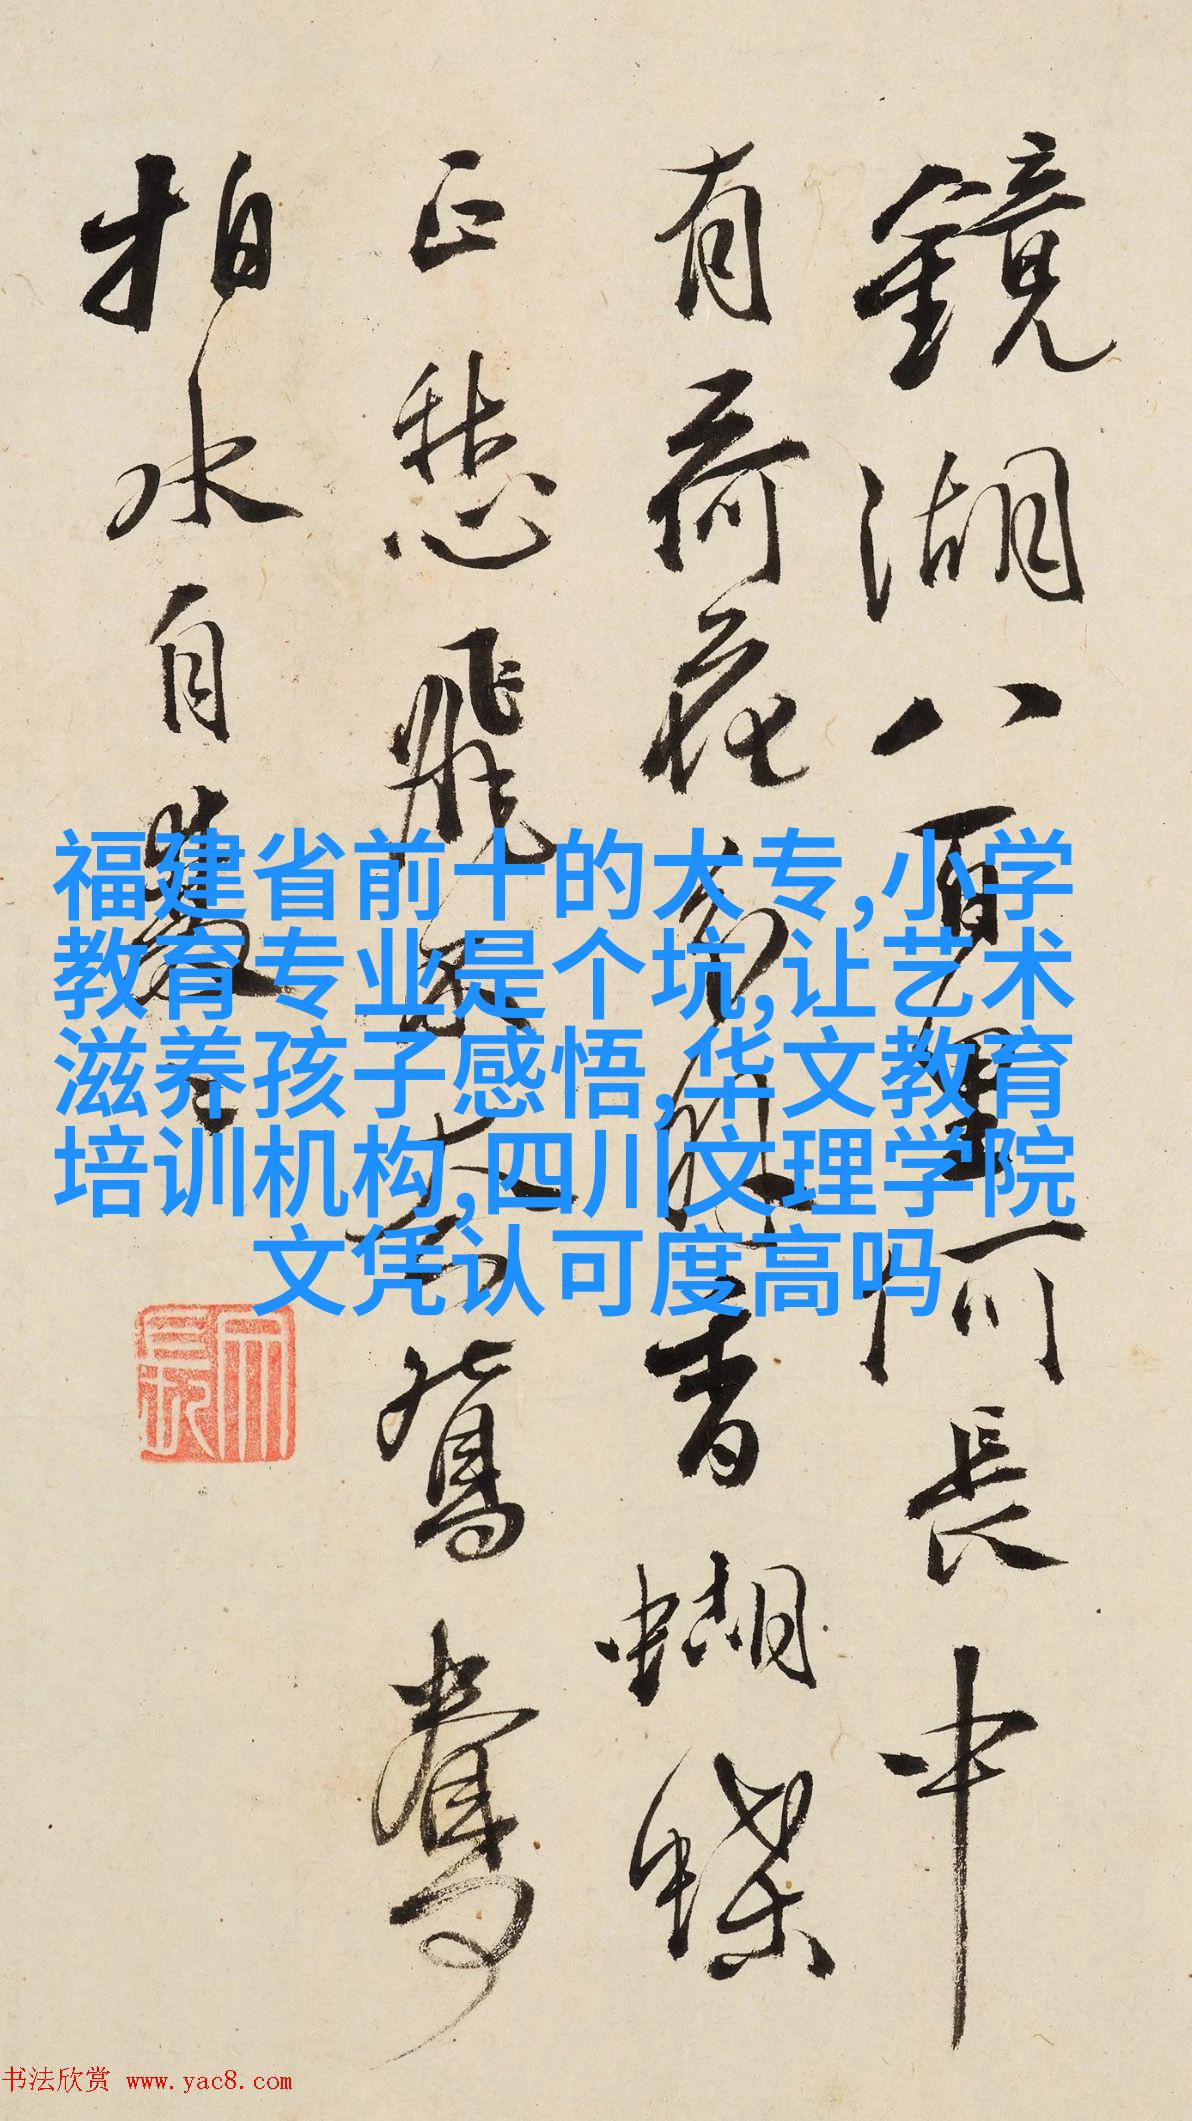 鏡湖八百里何長中
有荷花分外香蝴蝶
正愁飛不過鴛鴦
拍水自雙〻
福建省前十的大专,小学
教育专业是个坑,让艺术
滋养孩子感悟,华文教育
培训机构,四川文理学院
文凭认可度高吗
书法欣赏 www.yac8.com